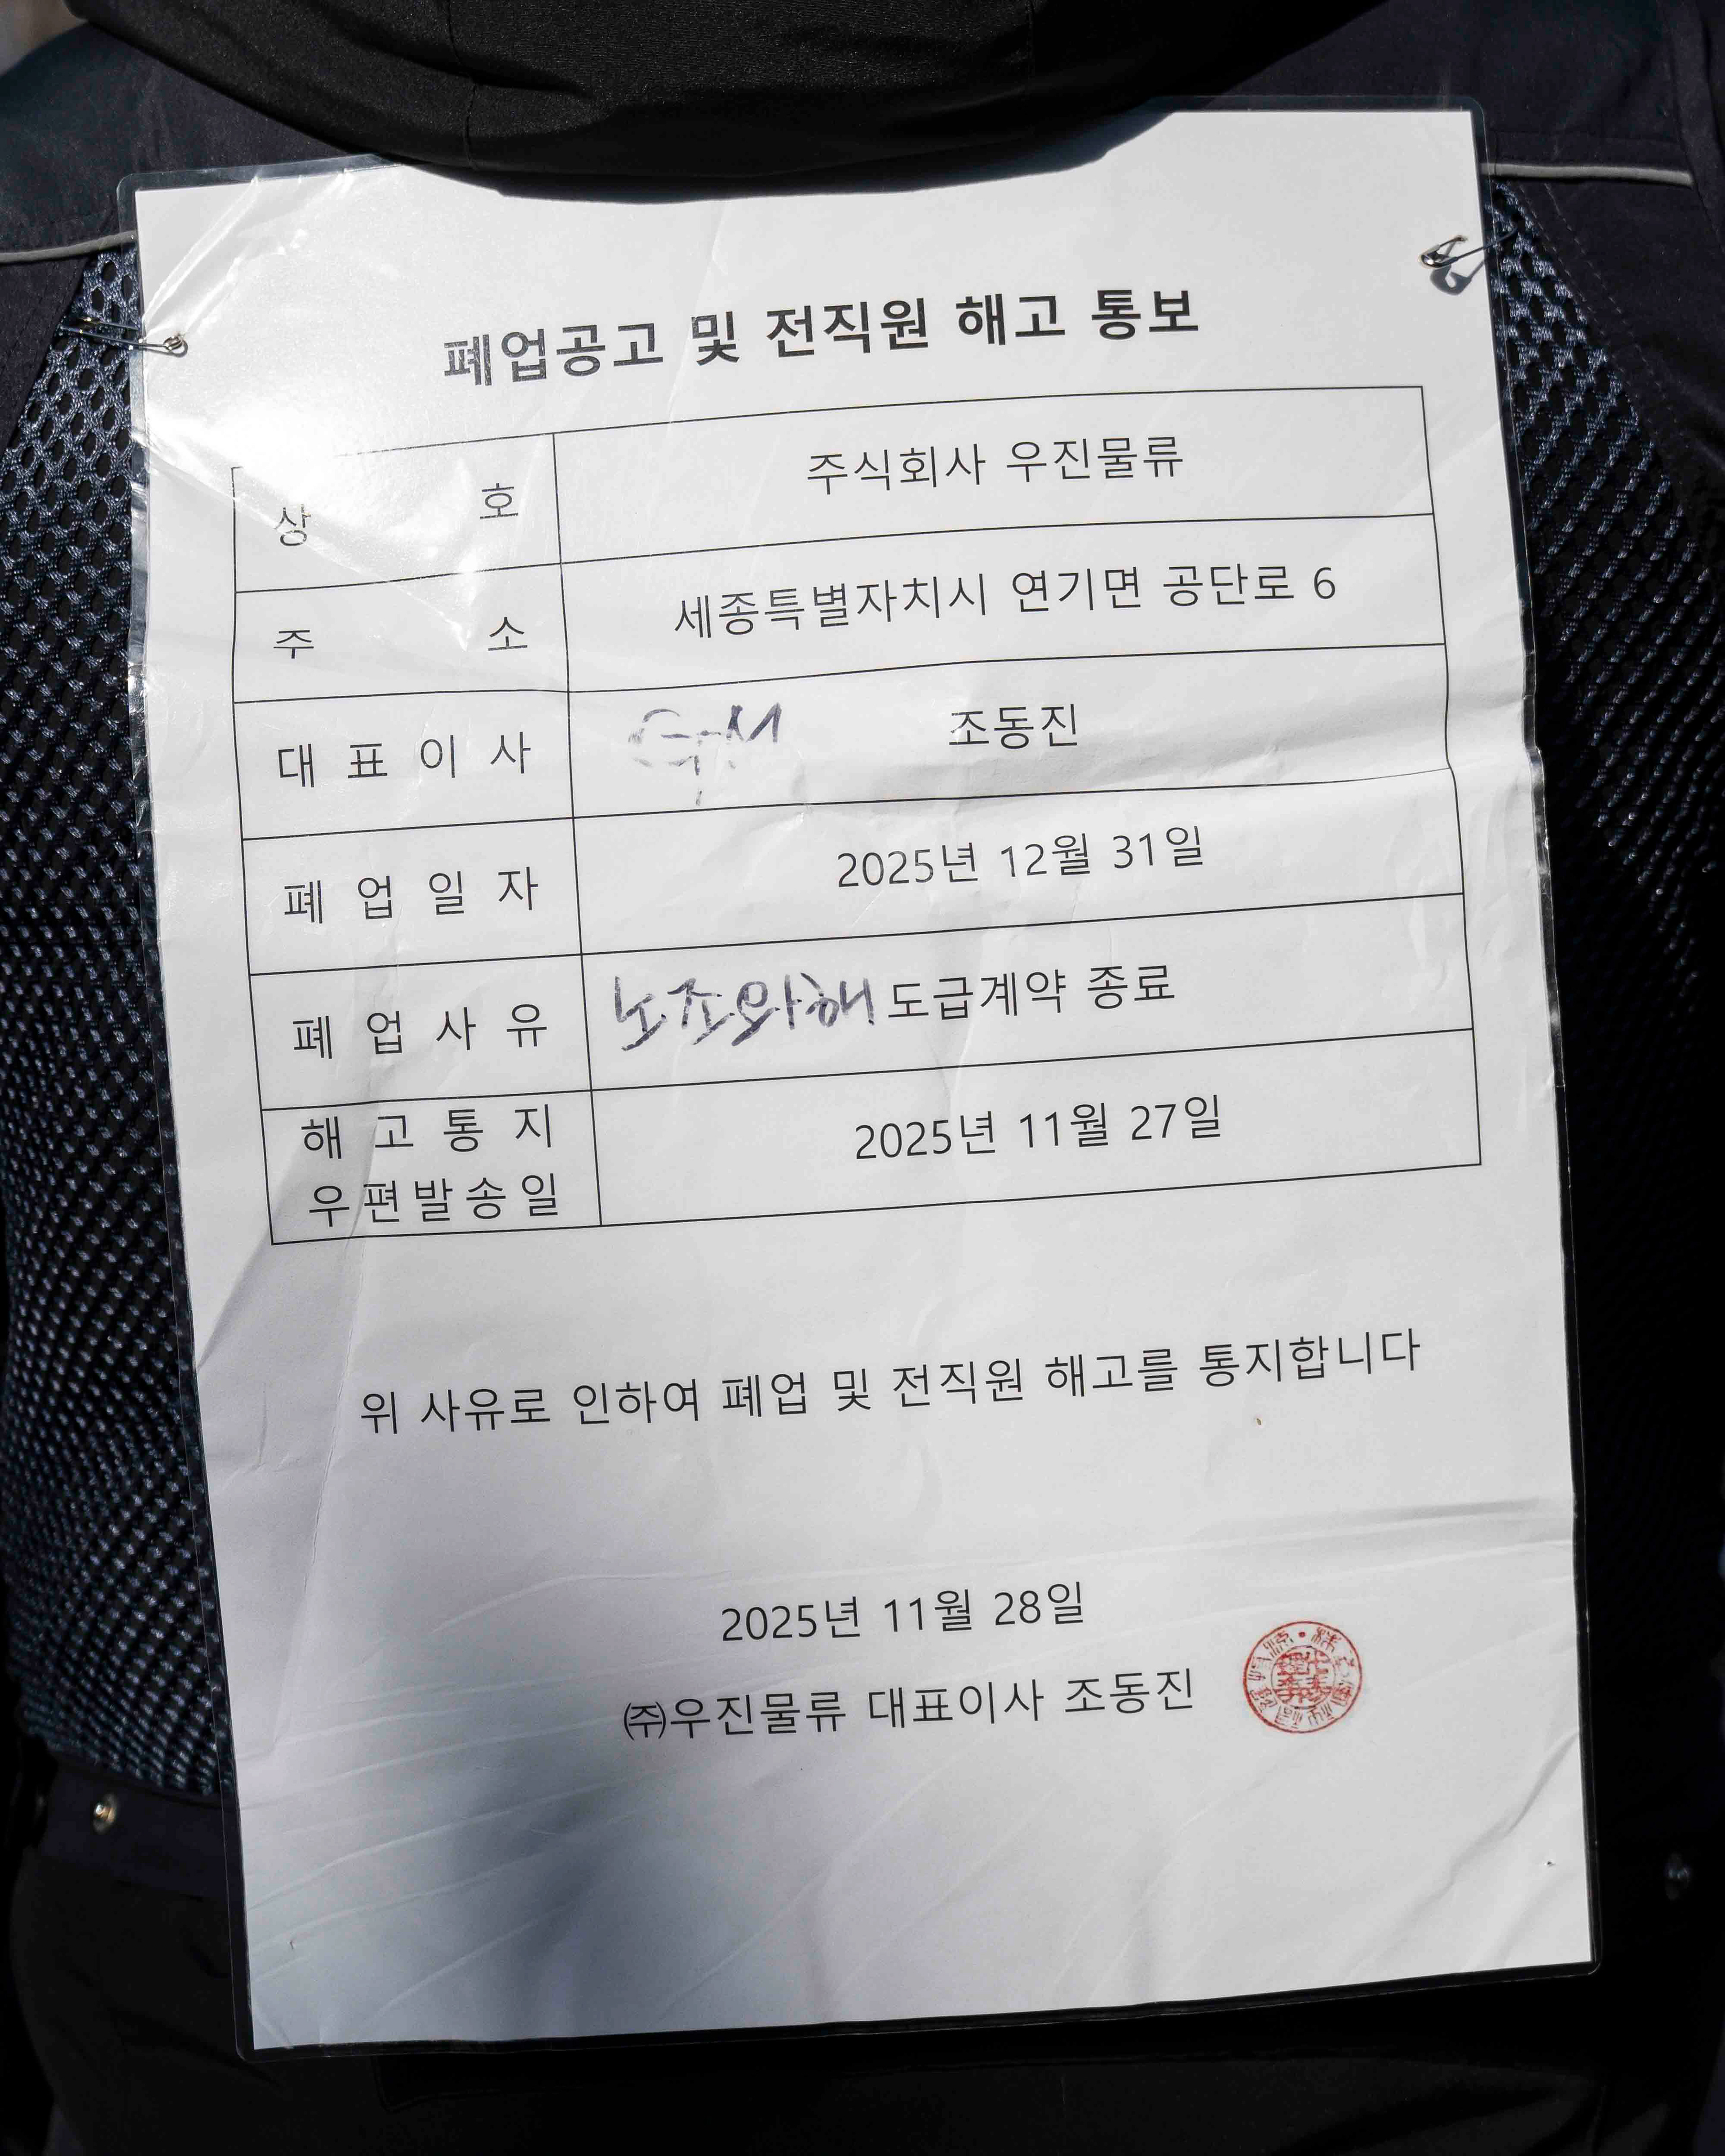 폐업공고 및 전직원 해고 통보
상 호 주식회사 우진물류
주 소 세종특별자치시 연기면 공단로 6
대 표 이 사 GM 조동진
폐 업 일 자 2025년 12월 31일
폐 업 사 유 노조와해 도급계약 종료
해 고 통 지
우편발송일 2025년 11월 27일
위 사유로 인하여 폐업 및 전직원 해고를 통지합니다
2025년 11월 28일
㈜우진물류 대표이사 조동진